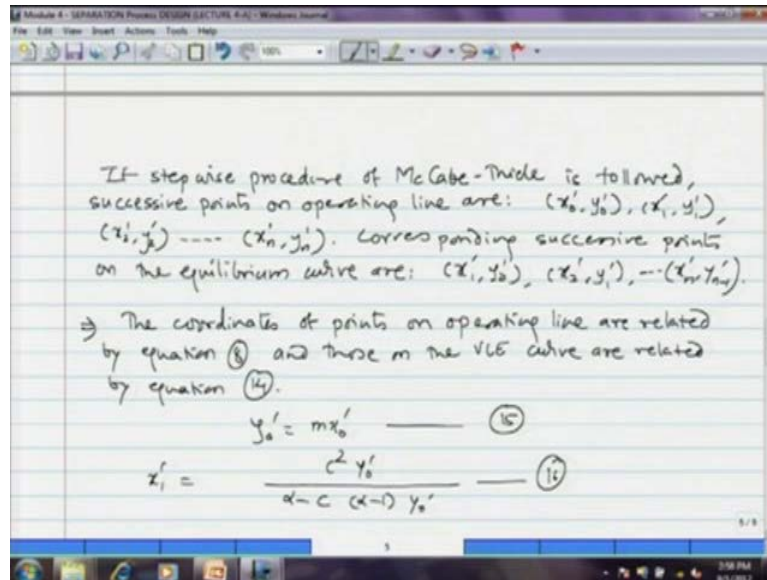 Module 4 - SEPARATION Process DESIGN (LECTURE 4-A) - Windows Journal
File Edit View Insert Actions Tools Help
100%
If stepwise procedure of McCabe-Thiele is followed,
successive points on operating line are: (x₀', y₀'), (x₁', y₁'),
(x₂', y₂') ---- (xₙ', yₙ'). Corresponding successive points
on the equilibrium curve are: (x₁', y₀'), (x₂', y₁'), --- (xₙ', yₙ₋₁').
⇒ The coordinates of points on operating line are related
by equation ⑧ and those on the VLE curve are related
by equation ⑭.
y₀' = mx₀' ——— ⑮
x₁' = c² y₀' / α - c (α-1) y₀' ——— ⑯
5/8
5
3:58 PM